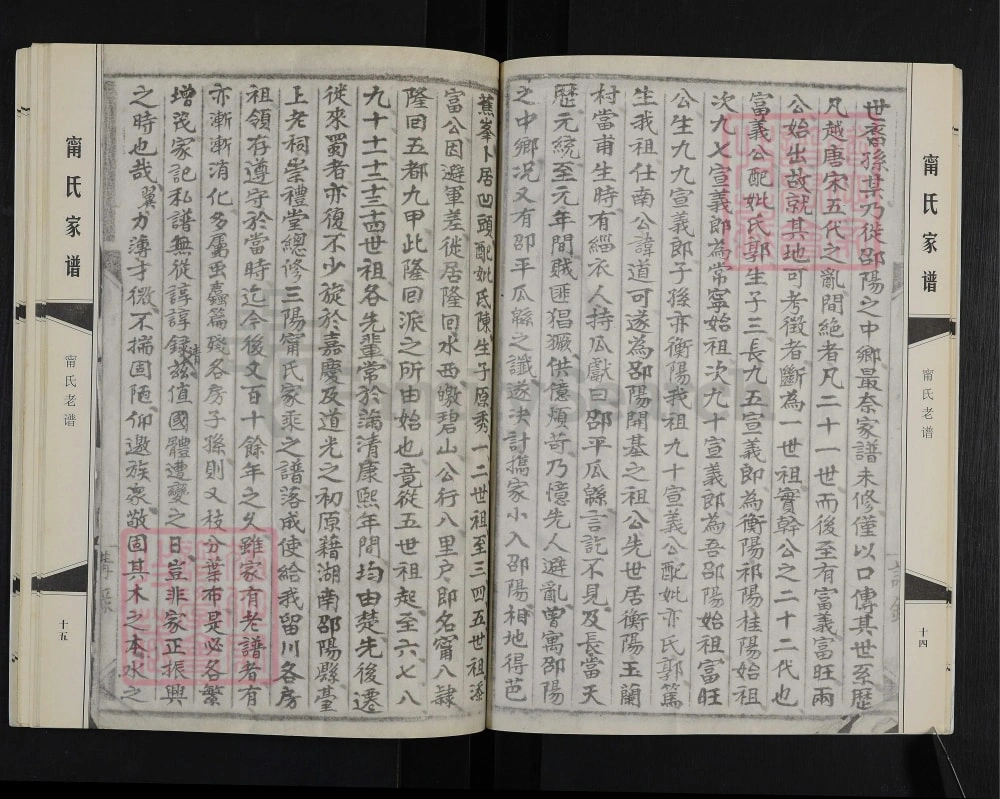 甯氏家谱
甯氏老谱
十四
世裔孫其乃從邵陽之中鄉最奈家譜未修僅以口傳其世系歷
凡越唐宋五代之亂間絕者凡二十一世而後至有富義富旺兩
公始出故就其地可考徵者斷為一世祖實幹公之二十二代也
富義公配妣氏郭生子三長九五宣義郎為衡陽祁陽桂陽始祖
次九七宣義郎為常寧始祖次九十宣義郎為吾邵陽始祖富旺
公生九九宣義郎子孫亦衡陽我祖九十宣義公配妣亦氏郭篤
生我祖仕南公諱道可遂為邵陽開基之祖公先世居衡陽玉蘭
村當甫生時有緇衣人持瓜獻曰邵平瓜緜言訖不見及長當天
歷元統至元年間賊匪猖獗供億煩苛乃憶先人避亂曾寓邵陽
之中鄉况又有邵平瓜緜之讖遂決計搞家小入邵陽相地得芭
蕉峯卜居凹頭配妣氏陳生子原秀一二世祖至三四五世祖添
富公因避軍差徙居隆回水西皦碧山公行八里户即名甯八隷
隆回五都九甲此隆回派之所由始也竟從五世祖起至六七八
九十十一十二十三十四世祖各先輩常於滿清康熙年間均由楚先後遷
徙來蜀者亦復不少旋於嘉慶及道光之初原藉湖南邵陽縣臺
上老祠崇禮堂總修三陽甯氏家乘之譜落成使給我留川各房
祖領存遵守於當時迄今後又百十餘年之久雖家有老譜者有
亦漸漸消化多属虫蠹篇殘各房子孫則又枝分葉布是必各繁
增説家記私譜無從諄諄錄清兹值國體遭變之日豈非家正振興
之時也哉翼力薄才微不揣固陋仰邀族衆敬固其木之本水之
甯氏家谱
甯氏老谱
十五